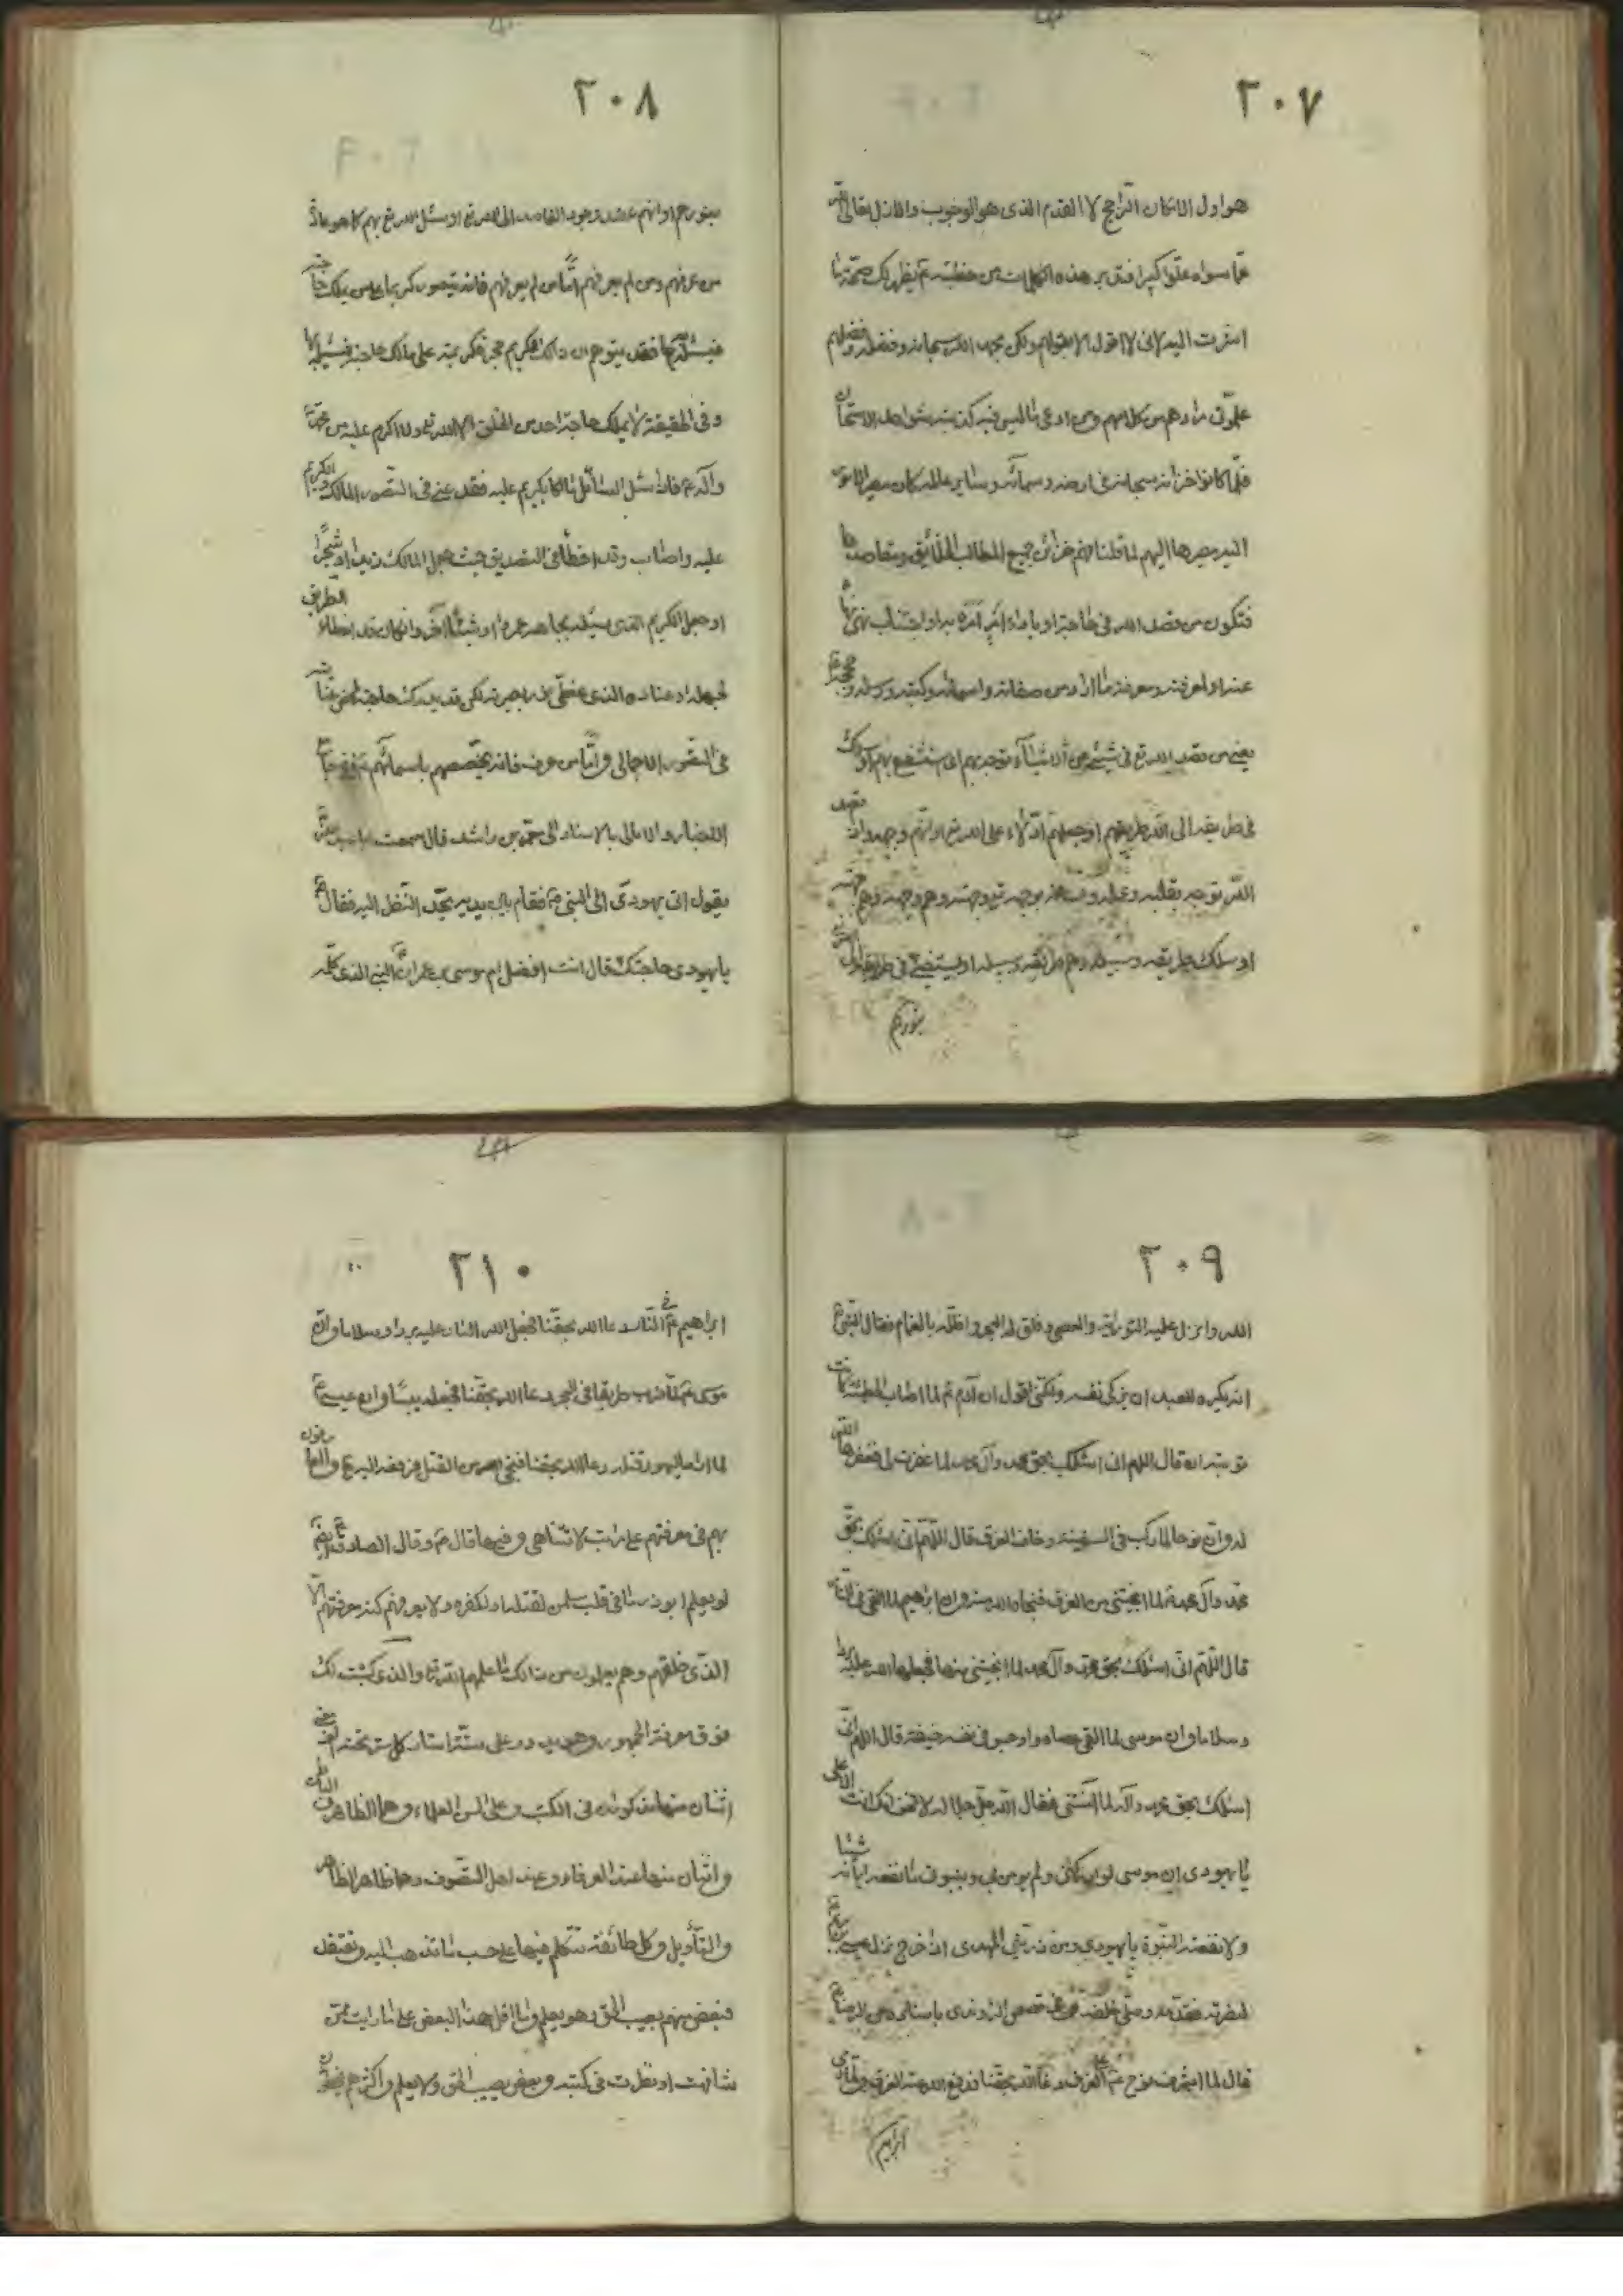 ٢٠٧
هو اول الامكان الراجح لا القدم الذى هو الوجوب والازل تعالى الله
عما سواه علوا كبيرا فتدبر هذه الكلمات من خطبته ثم يظهر لك صحة ما
اشرت اليه لانى لا اقول الا بقولهم ولكن بحمد الله سبحانه وفضله وفضلهم
علمونى مرادهم من كلامهم ومن ادعى ما ليس فيه كذبته شواهد الامتحان
فلما كانوا خزائنه سبحانه فى ارضه وسمائه وساير عالمه كان مصير الامور
اليه مصيرها اليهم لما قلنا انهم خزائن جميع المطالب الخلائق ومقاصدها
فتكون من قصد الله فى حاجة او باداء امر آمره به او اجتناب نهى نهاه
عنه او لمعرفة ومعرفة ما اراد من صفاته واسمائه وكتبه ورسله وحججه
يعنى من قصد الله تع فى شىء من الاشياء توجه بهم اى استشفع بهم او سلك
فى طريقه الى الله طريقهم او جعلهم ادلاء على الله تع او انهم وجهه وان قصد
الله توجه بقلبه وعمله وجهته وهم وجهه وهم جهته
او سلك طريقه وسبيله وهم طريقه وسبيله او يستضئ فى طريقه
بنورهم
٢٠٨
بنورهم او انهم عضد وجود القاصد الى الله تع او سئل الله تع بهم كما هو عادة
من عرفهم ومن لم يعرفهم اما من لم يعرفهم فانه يتصور كريما على من يملك حاجته
فيسئله بها فقد يتوهم ان ذلك الكريم حجر فكريمته على مالك حاجته فيسئله بها
وفى الحقيقة لا يملك حاجة احد من الخلق الا الله تع ولا اكرم عليه من محمد
وآله ع فاذا سئل السائل مالكا بكريم عليه فقد عنى فى التصور المالك والكريم
عليه واصاب وقد اخطأ فى التصديق حيث جعل المالك زيدا او شجرا
او جعل الكريم الذى يسئله بجاهه عمرا او شيئا آخر وانما وقد اخطاء الطريق
لجهله او عناده الذى غطى نور بصيرته لكن قد يدرك حاجته
فى التصور الاجمالى واما من عرف فانه يخصصهم باسمائهم
الاخبار والامالى بالاسناد الى معمر بن راشد قال سمعت ابا عبد الله
يقول اتى يهودى الى النبى ص فقام بين يديه يحد النظر اليه فقال ص
يا يهودى حاجتك قال انت افضل ام موسى بن عمران النبى الذى كلمه
٢٠٩
الله وانزل عليه التورية والعصى وفلق له البحر واظله بالغمام فقال النبى ص
انه يكره للعبد ان يزكى نفسه ولكنى اقول ان آدم ع لما اصاب الخطيئة كانت
توبته ان قال اللهم انى اسئلك بحق محمد وآل محمد لما غفرت لى فغفرها الله
له وان نوحا لما ركب فى السفينة وخاف الغرق قال اللهم انى اسئلك بحق
محمد وآل محمد لما انجيتنى من الغرق فنجاه الله منه وان ابراهيم لما القى فى النار
قال اللهم انى اسئلك بحق محمد وآل محمد لما انجيتنى منها فجعلها الله عليه بردا
وسلاما وان موسى لما القى عصاه واوجس فى نفسه خيفة قال اللهم انى
اسئلك بحق محمد وآله لما آمنتنى فقال الله جل جلاله لا تخف انك انت الاعلى
يا يهودى ان موسى لو ادركنى ولم يؤمن بى وبنبوتى ما نفعه ايمانه شيئا
ولا نفعته النبوة يا يهودى ومن ذريتى المهدى اذا خرج نزل عيسى بن مريم
لنصرته فقدمه وصلى خلفه وفى قصص الراوندى باسناده عن الرضا ع
قال لما اشرف نوح ع على الغرق دعا الله بحقنا فدفع الله عنه الغرق ولما رمى
ابراهيم
٢١٠
ابراهيم ع فى النار دعا الله بحقنا فجعل الله النار عليه بردا وسلاما وان
موسى ع لما ضرب طريقا فى البحر دعا الله بحقنا فجعله يبسا وان عيسى ع
لما اراد اليهود قتله دعا الله بحقنا فنجى من القتل فرفعه اليه تع والعارفون
بهم فى معرفتهم على مراتب لا تتناهى وفيها قال ع وقال الصادق ع ايضا
لو يعلم ابوذر ما فى قلب سلمن لقتله او لكفره ولا يعرفهم كنه معرفتهم الا
الذى خلقهم وهم يعلمون من ذلك ما علمهم الله تع والذى كتبت لك
فوق معرفة الجمهور وهو يدور على ستة استار كل ستر تحته
اثنان منها مذكوران فى الكتب وعلى السن العلماء وهما الظاهر والباطن
واثنان منها عند العرفاء وعند اهل التصوف وهما ظاهر الظاهر
والتأويل وكل طائفة تتكلم فيها على حسب ما تذهب اليه وتعتقد
فبعض منهم يصيب الحق وهو يعلم وما اقل هذا البعض على ما رايت ممن
شافهت او نظرت فى كتبه وبعض يصيب الحق ولا يعلم واكثرهم